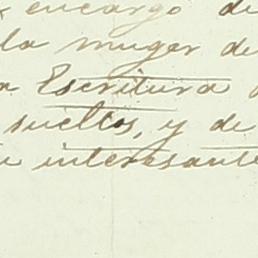 encargo de
la muger de
a Escritura
sueltos, y de
interesante